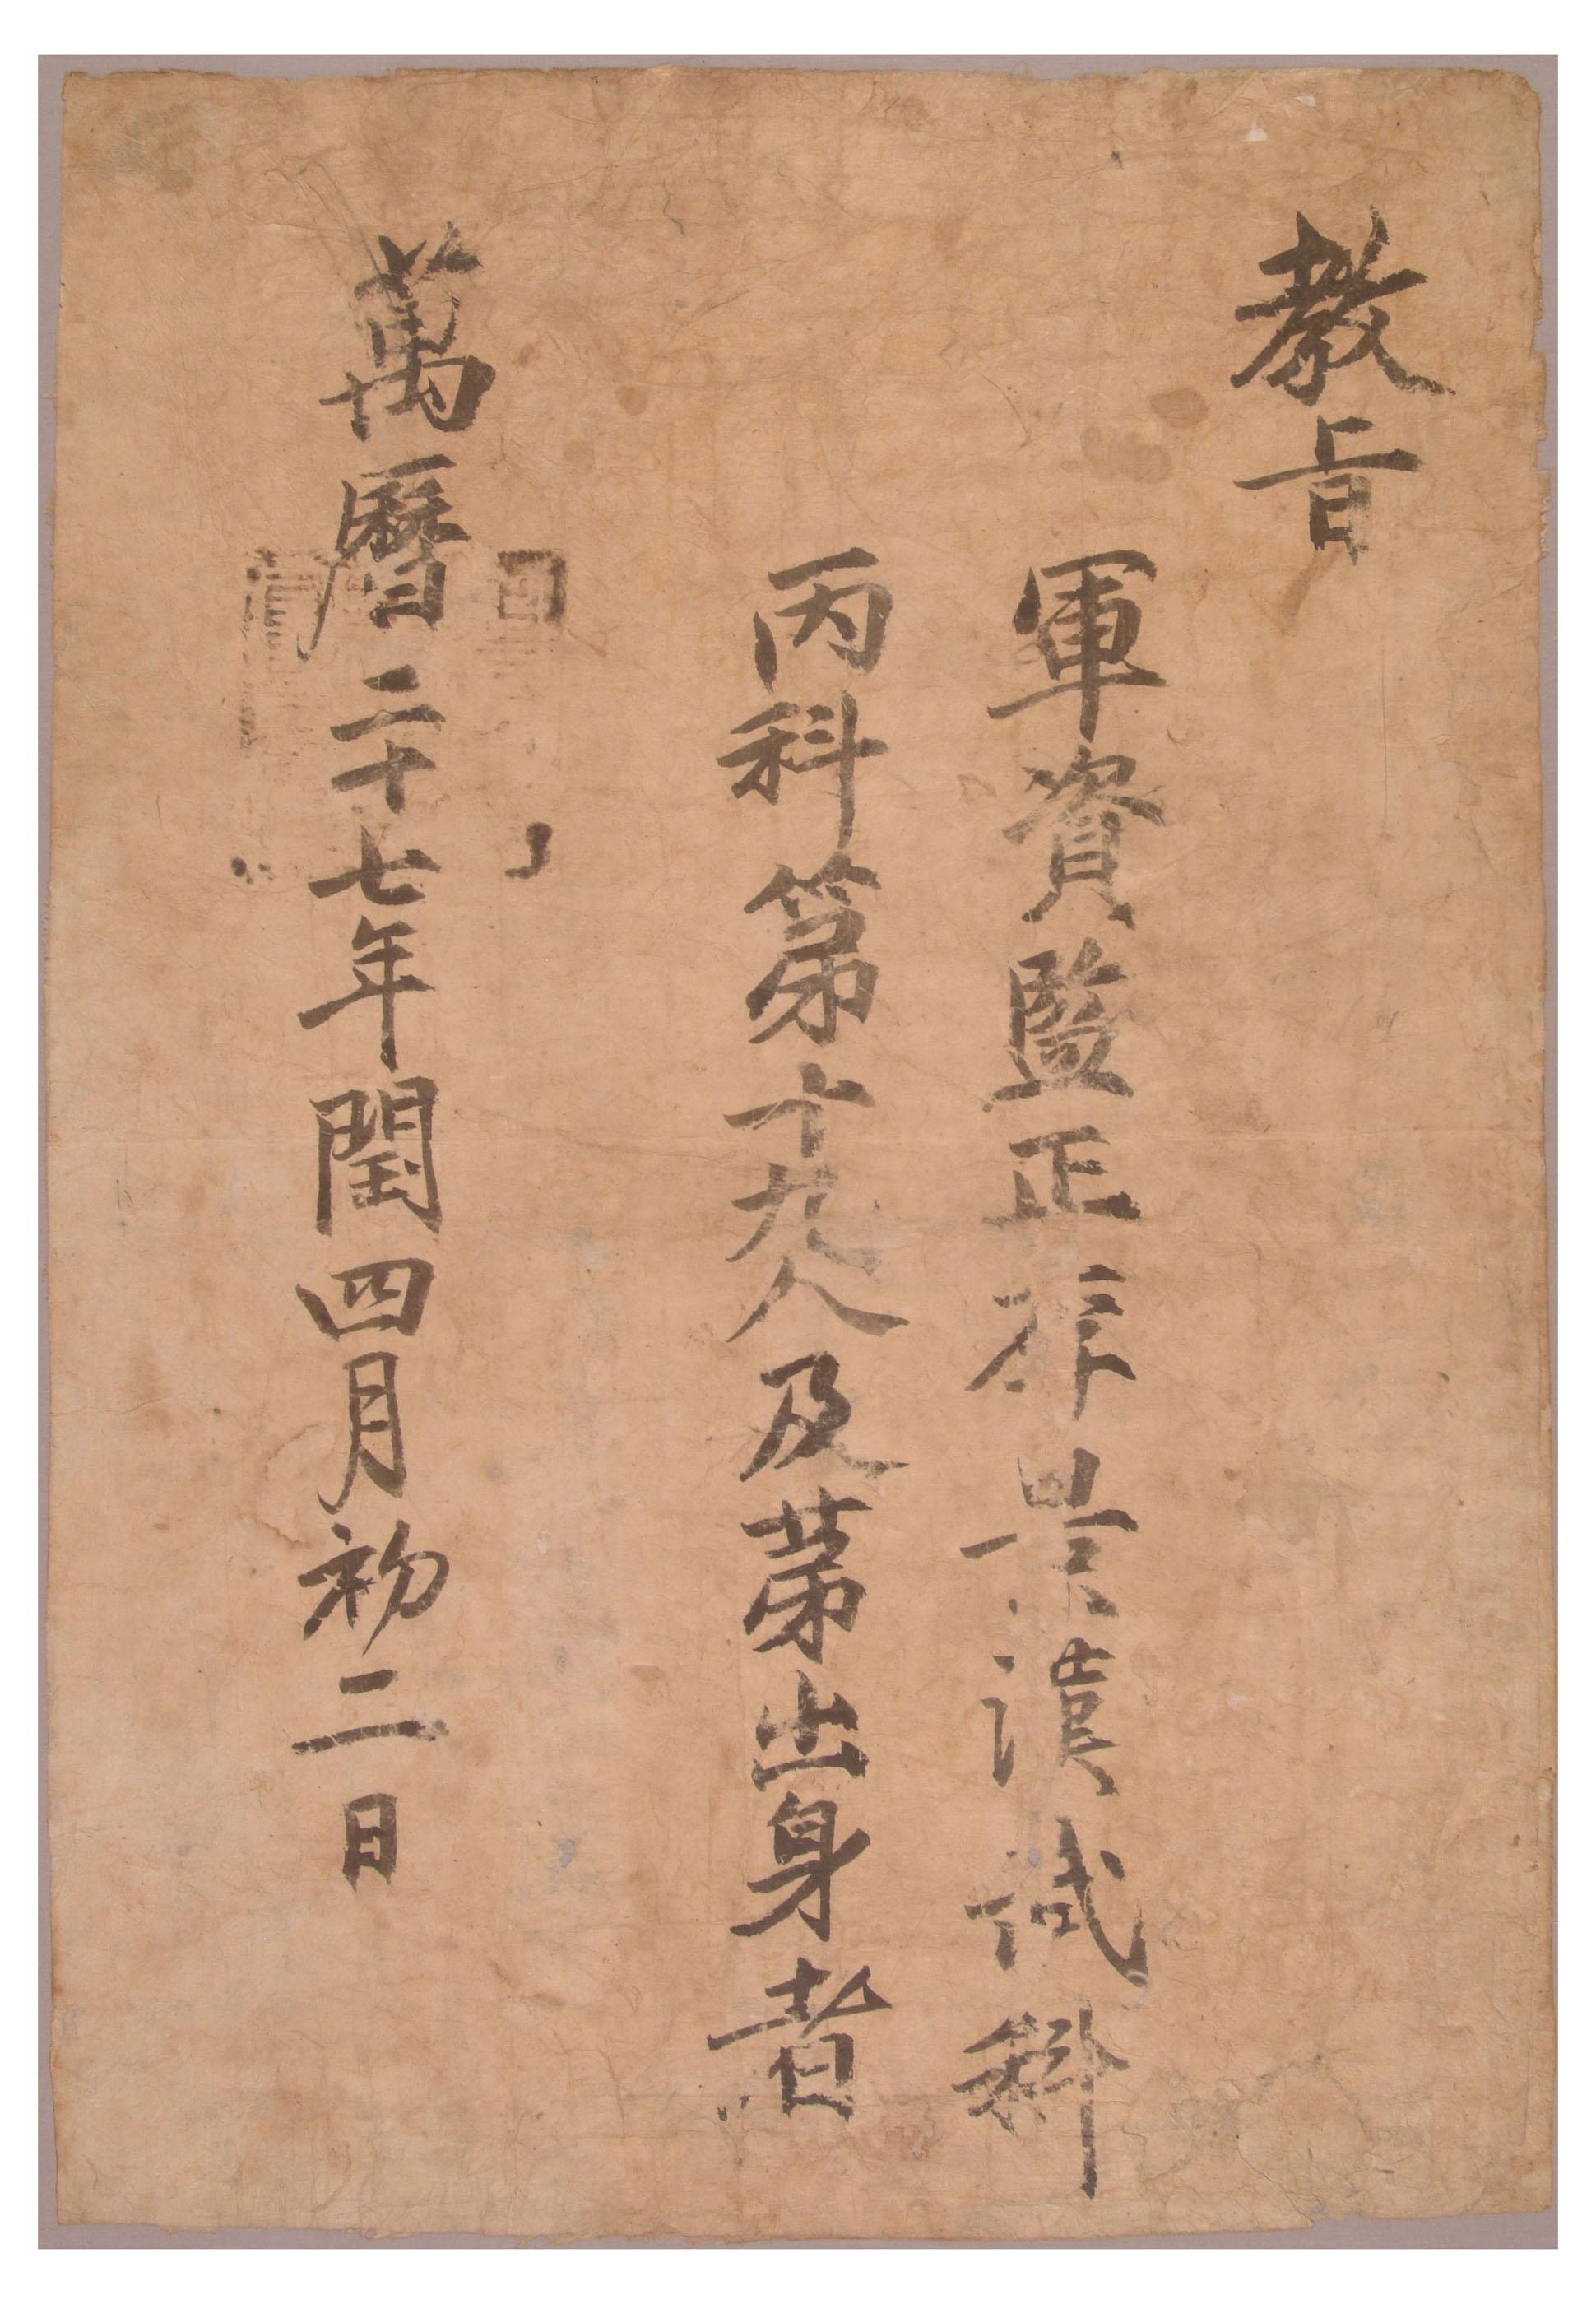 教旨
軍資監正景漢武科
丙科第十九人及苐出身者
萬曆二十七年閏四月初二日